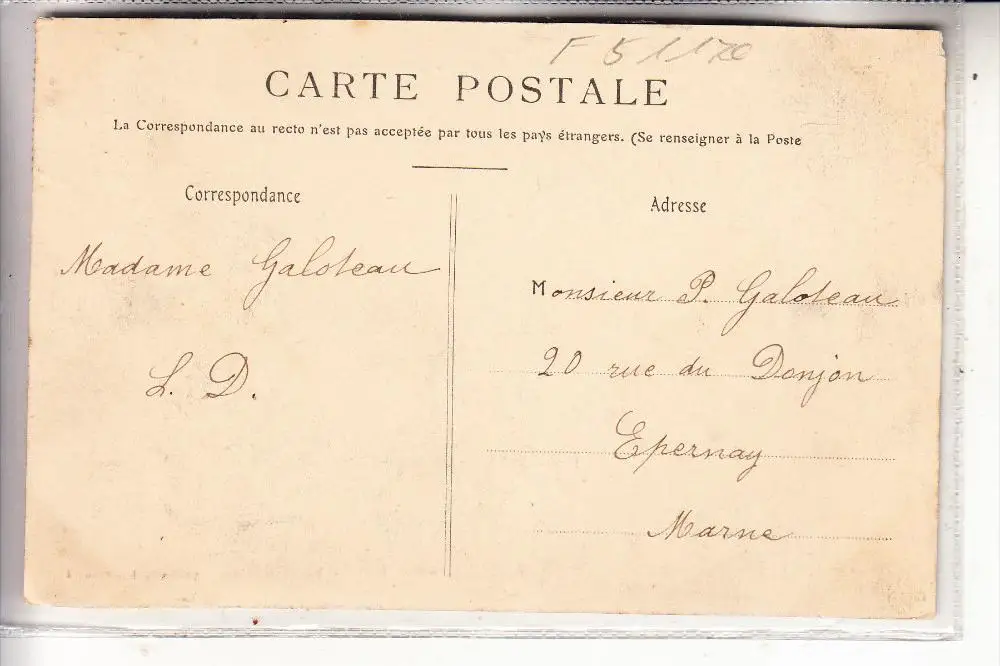 F 51170
CARTE POSTALE
La Correspondance au recto n'est pas acceptée par tous les pays étrangers. (Se renseigner à la Poste
Correspondance
Madame Galoteau
L. D.
Adresse
Monsieur P. Galoteau
20 rue du Donjon
Epernay
Marne